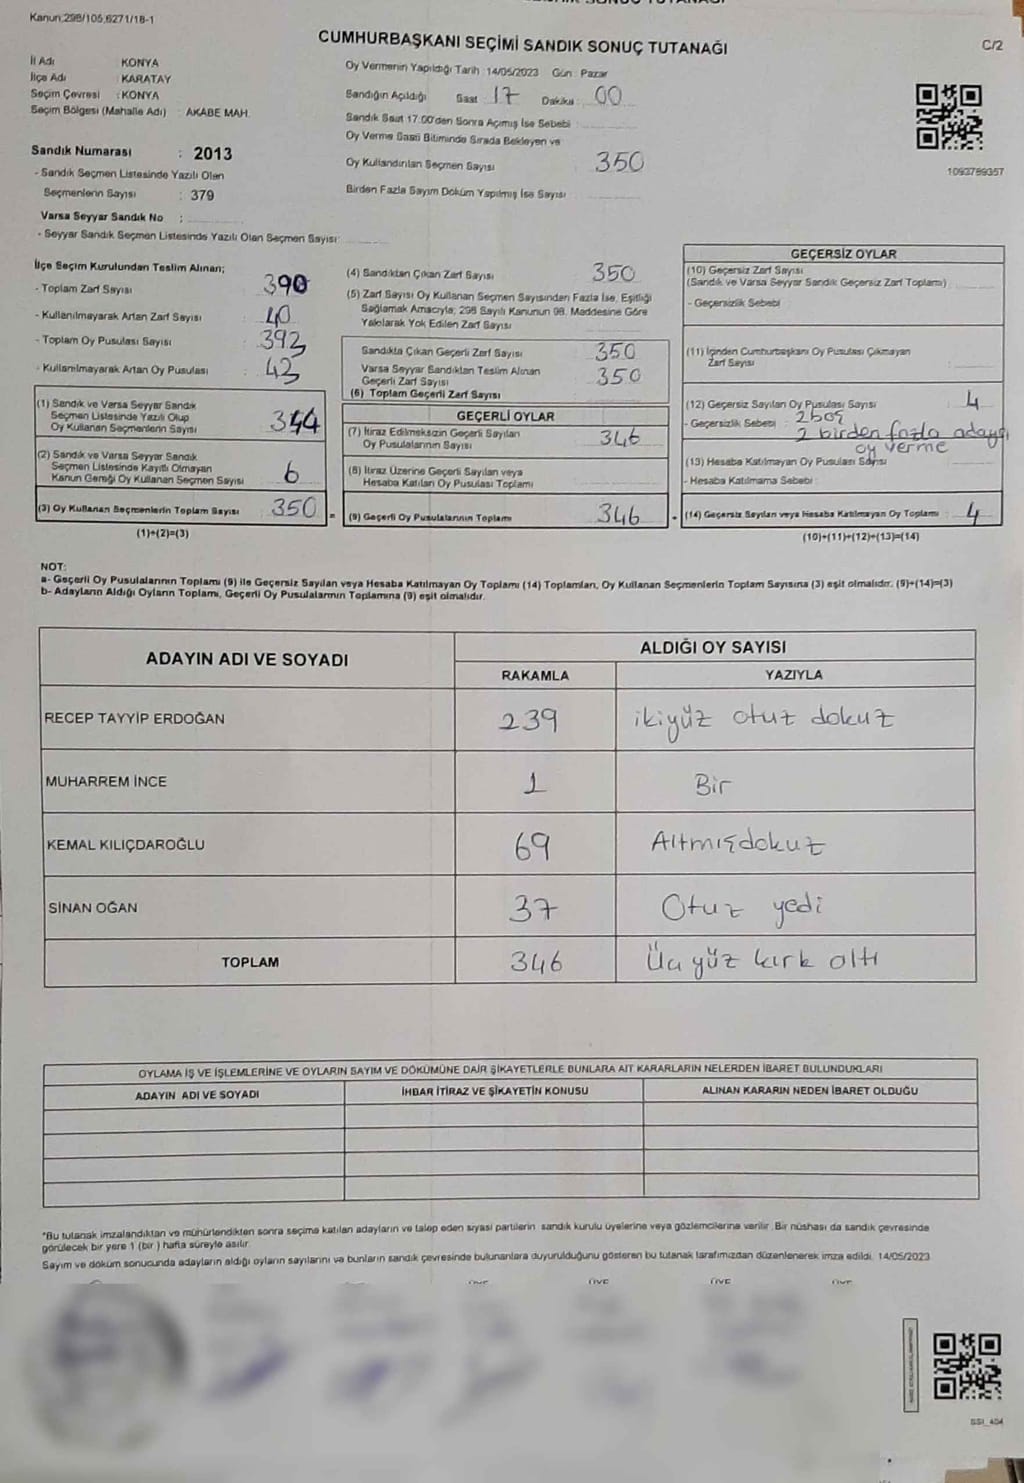 Kanun:298/105,6271/18-1
CUMHURBAŞKANI SEÇİMİ SANDIK SONUÇ TUTANAĞI
C/2
İl Adı KONYA
İlçe Adı : KARATAY
Seçim Çevresi : KONYA
Seçim Bölgesi (Mahalle Adı) : AKABE MAH.
Sandık Numarası : 2013
- Sandık Seçmen Listesinde Yazılı Olan
Seçmenlerin Sayısı : 379
Varsa Seyyar Sandık No :
- Seyyar Sandık Seçmen Listesinde Yazılı Olan Seçmen Sayısı:
Oy Vermenin Yapıldığı Tarih : 14/05/2023 Gün : Pazar
Sandığın Açıldığı Saat : 17 Dakika : 00
Sandık Saat 17:00'den Sonra Açımış İse Sebebi :
Oy Verme Saati Bitiminde Sırada Bekleyen ve
Oy Kullandırılan Seçmen Sayısı : 350
Birden Fazla Sayım Döküm Yapılmış İse Sayısı :
1093789357
İlçe Seçim Kurulundan Teslim Alınan;
- Toplam Zarf Sayısı : 390
- Kullanılmayarak Artan Zarf Sayısı : 40
- Toplam Oy Pusulası Sayısı : 393
- Kullanılmayarak Artan Oy Pusulası : 43
(1) Sandık ve Varsa Seyyar Sandık
Seçmen Listesinde Yazılı Olup
Oy Kullanan Seçmenlerin Sayısı : 344
(2) Sandık ve Varsa Seyyar Sandık
Seçmen Listesinde Kayıtlı Olmayan
Kanun Gereği Oy Kullanan Seçmen Sayısı : 6
(3) Oy Kullanan Seçmenlerin Toplam Sayısı : 350
(1)+(2)=(3)
(4) Sandıktan Çıkan Zarf Sayısı : 350
(5) Zarf Sayısı Oy Kullanan Seçmen Sayısından Fazla İse, Eşitliği
Sağlamak Amacıyla; 298 Sayılı Kanunun 98. Maddesine Göre
Yakılarak Yok Edilen Zarf Sayısı :
Sandıkta Çıkan Geçerli Zarf Sayısı : 350
Varsa Seyyar Sandıktan Teslim Alınan
Geçerli Zarf Sayısı : 350
(6) Toplam Geçerli Zarf Sayısı
GEÇERLİ OYLAR
(7) İtiraz Edilmeksizin Geçerli Sayılan
Oy Pusulalarının Sayısı : 346
(8) İtiraz Üzerine Geçerli Sayılan veya
Hesaba Katılan Oy Pusulası Toplamı :
= (9) Geçerli Oy Pusulalarının Toplamı : 346
GEÇERSİZ OYLAR
(10) Geçersiz Zarf Sayısı
(Sandık ve Varsa Seyyar Sandık Geçersiz Zarf Toplamı)
- Geçersizlik Sebebi :
(11) İçinden Cumhurbaşkanı Oy Pusulası Çıkmayan
Zarf Sayısı :
(12) Geçersiz Sayılan Oy Pusulası Sayısı : 4
- Geçersizlik Sebebi : 2 boş
2 birden fazla adaya
oy verme
(13) Hesaba Katılmayan Oy Pusulası Sayısı :
- Hesaba Katılmama Sebebi :
+ (14) Geçersiz Sayılan veya Hesaba Katılmayan Oy Toplamı : 4
(10)+(11)+(12)+(13)=(14)
NOT:
a- Geçerli Oy Pusulalarının Toplamı (9) ile Geçersiz Sayılan veya Hesaba Katılmayan Oy Toplamı (14) Toplamları, Oy Kullanan Seçmenlerin Toplam Sayısına (3) eşit olmalıdır. (9)+(14)=(3)
b- Adayların Aldığı Oyların Toplamı, Geçerli Oy Pusulalarının Toplamına (9) eşit olmalıdır.
ADAYIN ADI VE SOYADI ALDIĞI OY SAYISI
RAKAMLA YAZIYLA
RECEP TAYYİP ERDOĞAN 239 ikiyüz otuz dokuz
MUHARREM İNCE 1 Bir
KEMAL KILIÇDAROĞLU 69 Altmışdokuz
SİNAN OĞAN 37 Otuz yedi
TOPLAM 346 Üçyüz kırk altı
OYLAMA İŞ VE İŞLEMLERİNE VE OYLARIN SAYIM VE DÖKÜMÜNE DAİR ŞİKAYETLERLE BUNLARA AİT KARARLARIN NELERDEN İBARET BULUNDUKLARI
ADAYIN ADI VE SOYADI İHBAR İTİRAZ VE ŞİKAYETİN KONUSU ALINAN KARARIN NEDEN İBARET OLDUĞU
*Bu tutanak imzalandıktan ve mühürlendikten sonra seçime katılan adayların ve talep eden siyasi partilerin sandık kurulu üyelerine veya gözlemcilerine verilir. Bir nüshası da sandık çevresinde
görülecek bir yere 1 (bir ) hafta süreyle asılır.
Sayım ve döküm sonucunda adayların aldığı oyların sayılarını ve bunların sandık çevresinde bulunanlara duyurulduğunu gösteren bu tutanak tarafımızdan düzenlenerek imza edildi. 14/05/2023
SSI_404